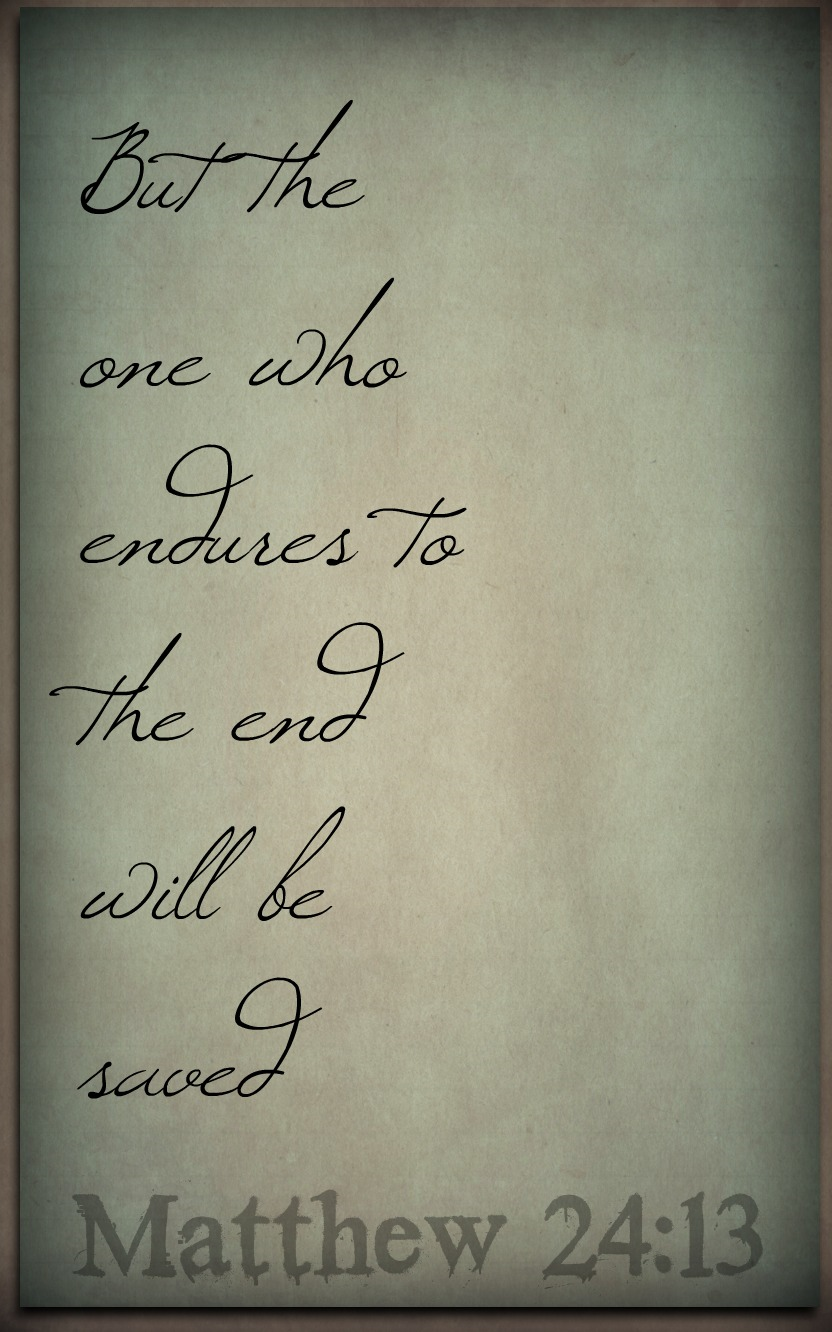 But the
one who
endures to
the end
will be
saved
Matthew 24:13